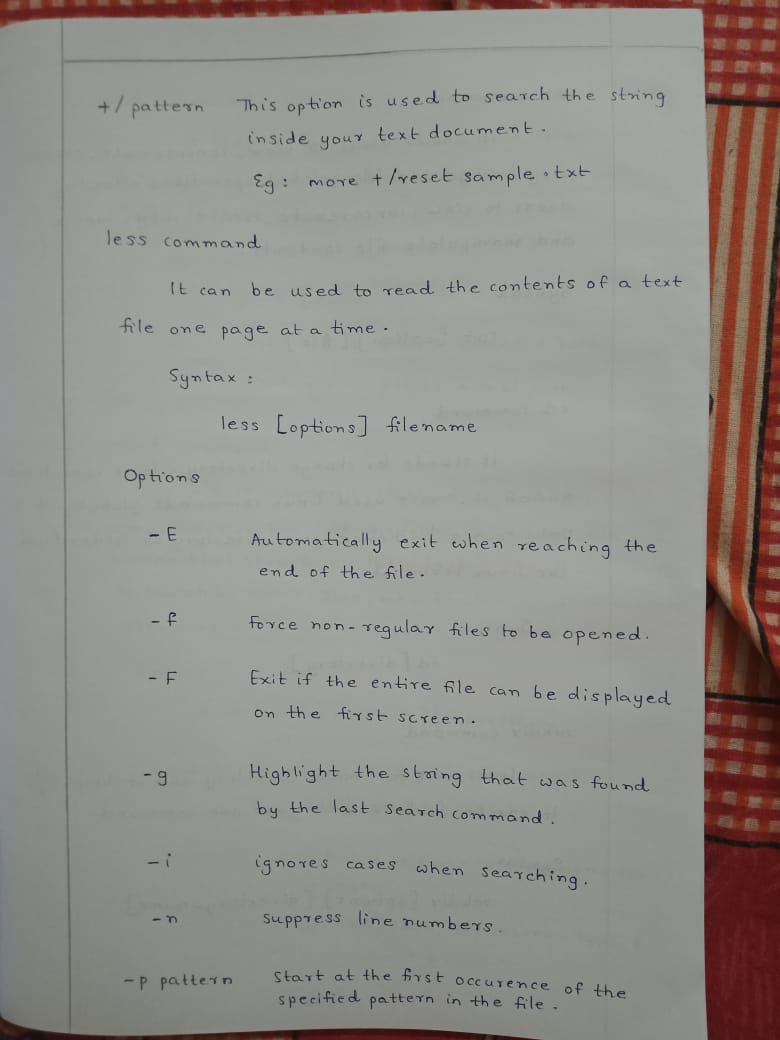 +/ pattern This option is used to search the string
inside your text document.
Eg: more +/reset sample.txt
less command
It can be used to read the contents of a text
file one page at a time.
Syntax:
less [options] filename
Options
-E Automatically exit when reaching the
end of the file.
-f Force non-regular files to be opened.
-F Exit if the entire file can be displayed
on the first screen.
-g Highlight the string that was found
by the last search command.
-i ignores cases when searching.
-n suppress line numbers.
-p pattern Start at the first occurence of the
specified pattern in the file.